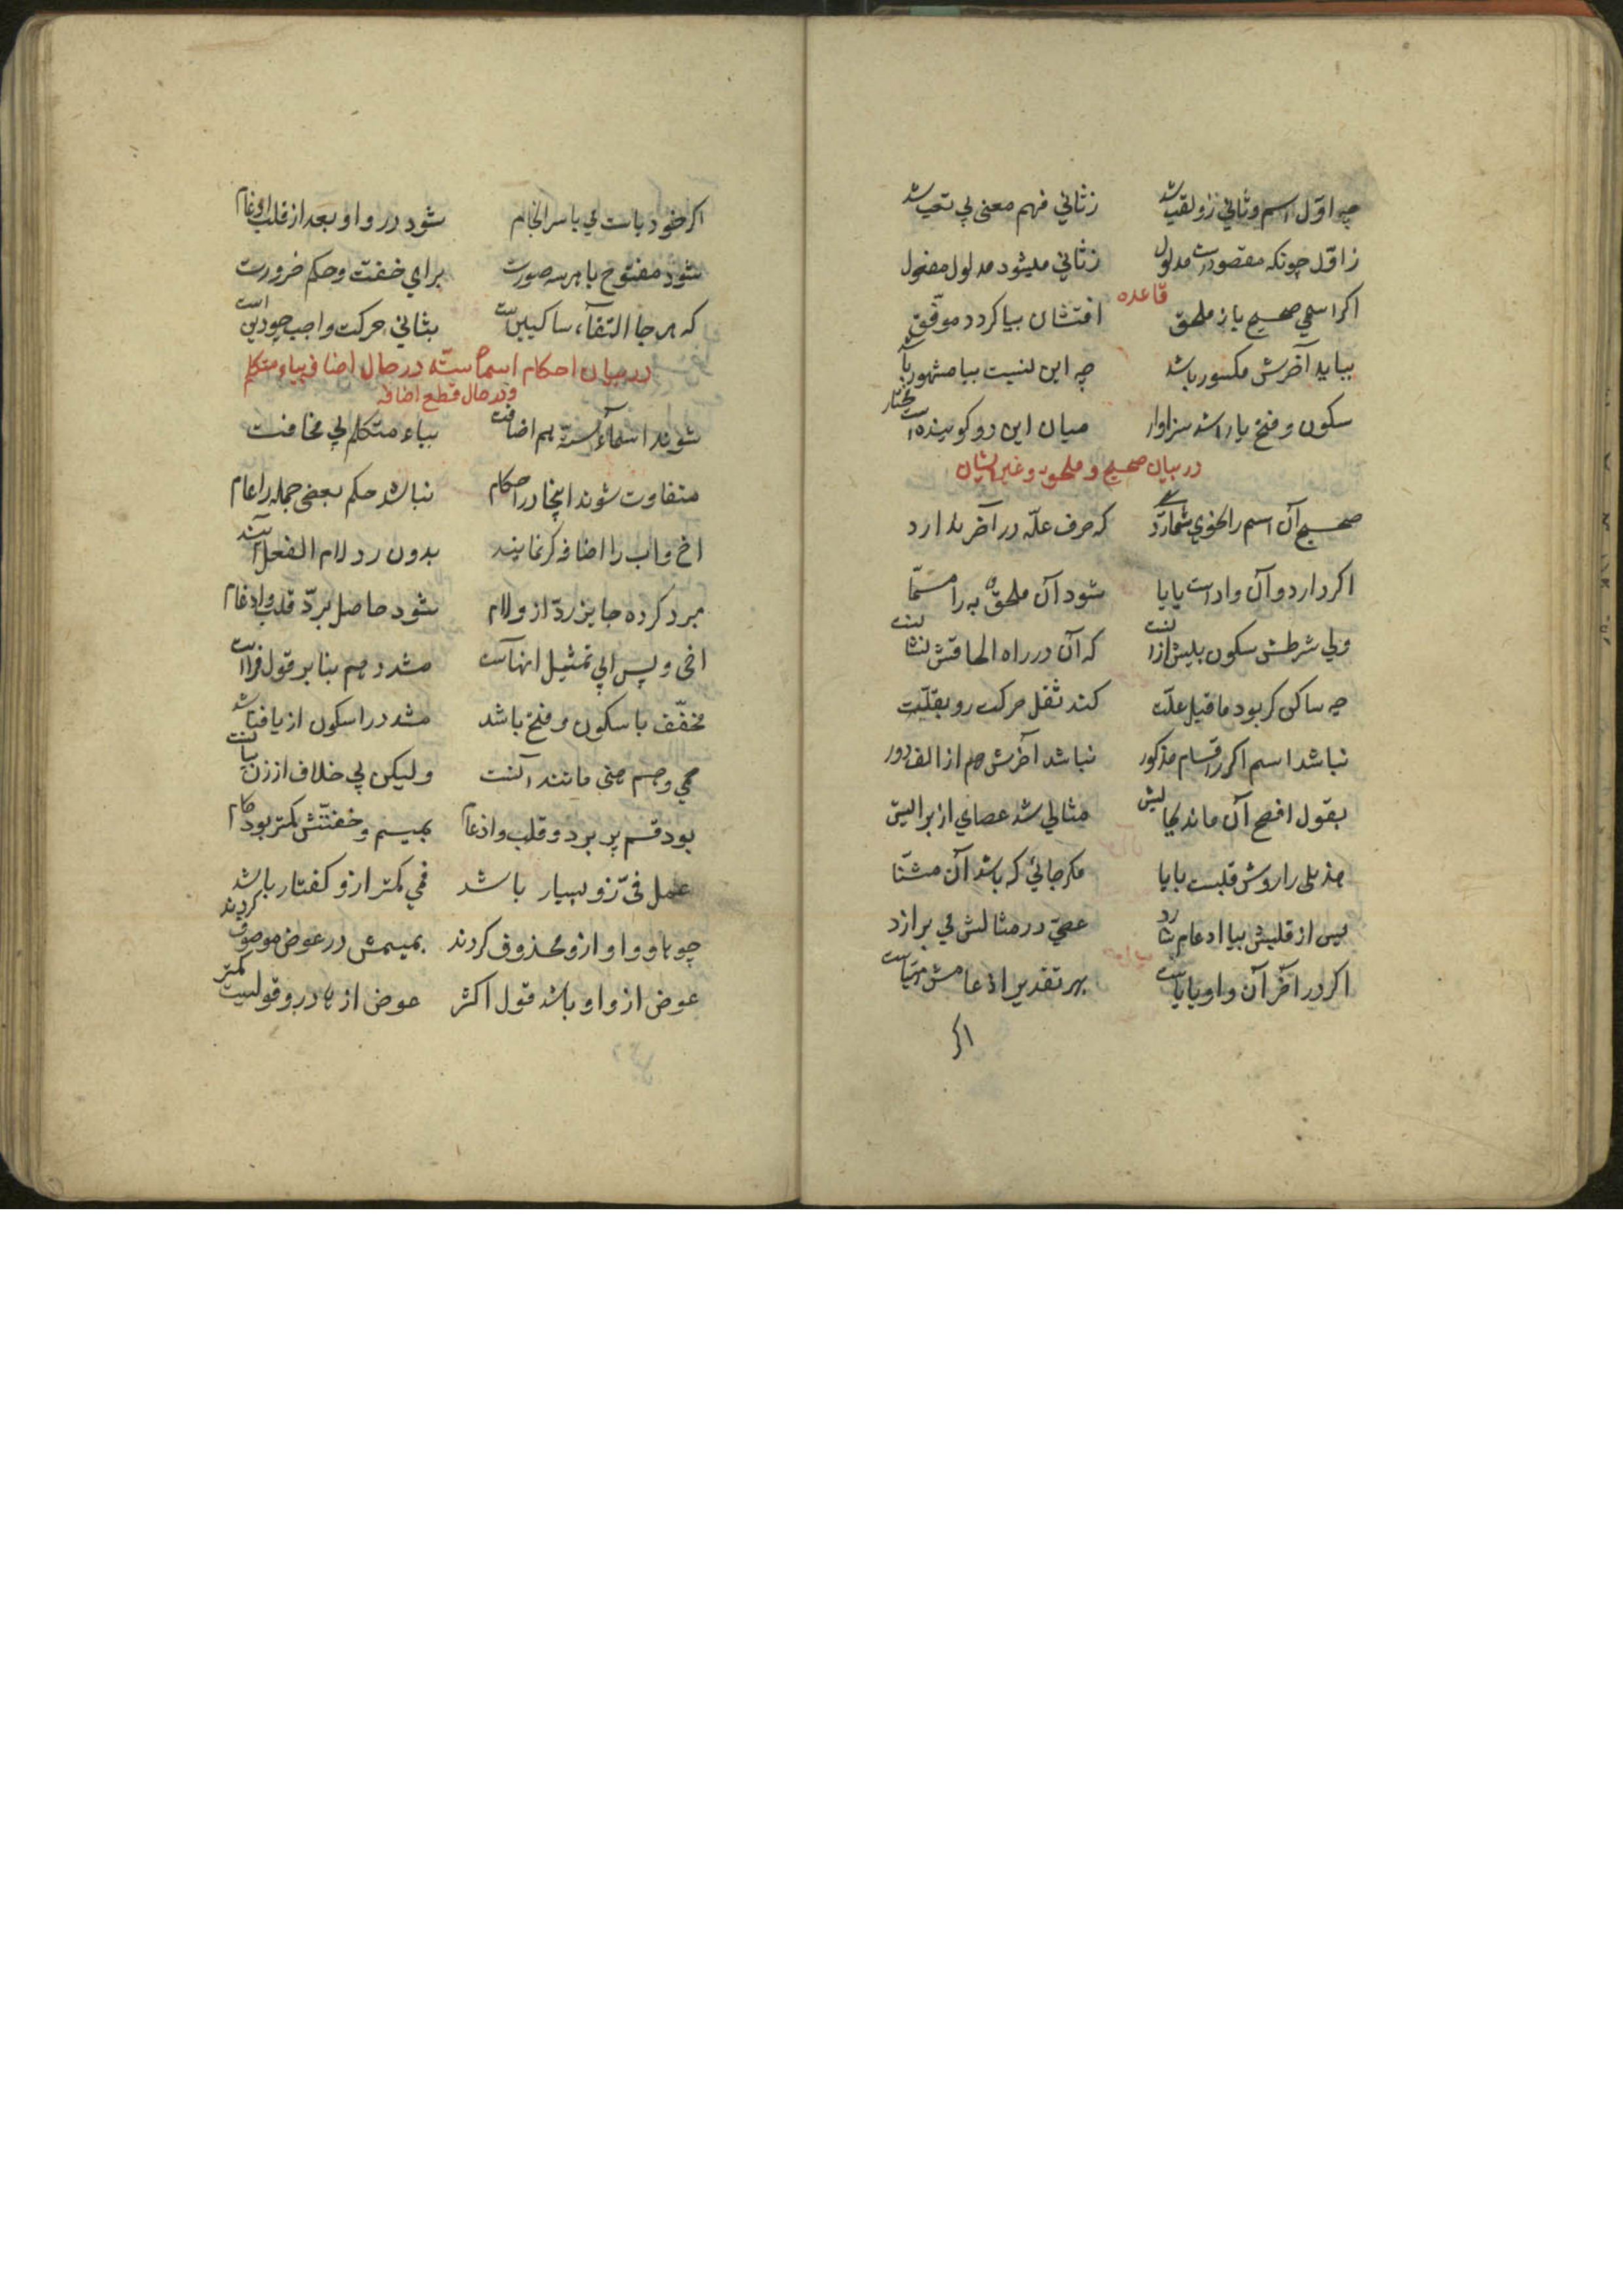 چه اوّل اسم و ثاني زو لقب شد ز ثاني فهم معنى بي تعب شد
ز اوّل چونكه مقصود است مدلول ز ثاني ميشود مدلول مفعول
قاعده
اكر اسمي صحيح يا ز ملحق اضافتشان بيا كردد موفّق
ببايد آخرش مكسور باشد چه اين نسبت بيا مشهور باشد
سكون و فتح يا را شد سزاوار ميان اين دو كوينده است مختار
در بيان صحيح و ملحق و غير ايشان
صحيح آن اسم را نحوي شمارد كه حرف علّه در آخر ندارد
اكر دارد و آن واو است يا يا شود آن ملحق به را مسمّا
ولي شرطش سكون پيش از آنست كه آن در راه الحاقش نشانست
چه ساكن كر بود ماقبل علّت كند ثقل حركت رو بقلّت
نباشد اسم اكر ز اقسام مذكور نباشد آخرش هم از الف دور
بقول افصح آن ماند بحاليش مثالي شد عصاي از براليش
هذيلى را روش قلبست با يا مكر جائي كه باشد آن مثنّا
پس از قلبش بيا ادغام شايد عصيّ در مثالش مي برازد
اكر در آخر آن واو يا ياست بهر تقدير ادغامش مهيّاست
اكر
اكر خود ياست ي با سر انجام شود در واو بعد از قلب ادغام
شود مفتوح يا هر سه صورت براي خفّت و حكم ضرورت
كه هر جا التقاء ساكنين است بثاني حركت واجب چو دين است
در بيان احكام اسماء ستّه در حال اضافه بياء متكلم
و در حال قطع اضافه
شوند اسماء ستّه هم اضافت بياء متكلم بي مخافت
متفاوت شوند اينجا در احكام نباشد حكم بعضى جمله را عام
اخ و اب را اضافه كر نمايند بدون رد لام الفعل آيند
مبرد كرده جايز ردّ از و لام شود حاصل برد قلب و ادغام
اخى و پس ابي تمثيل اينهاست مشدد هم بنا بر قول فرّاست
مخفّف با سكون و فتح باشد مشدد را سكون از يا فتاشد
حمي و هم هني مانند آنست وليكن بي خلاف از زن بيانست
بود قسم پر برد و قلب و ادغام بميم و خفّتش كمتر بود كام
عمل فيّ زو بسيار باشد فمي كمتر ازو كفتار باشد
چو ها و واو ازو محذوف كردند بميمش در عوض موصوف كردند
عوض از واو باشد قول اكثر عوض از ها درو قوليست كمتر